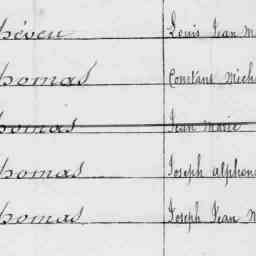 Louis Jean M
homas Constant Miche
homas Jean Marie
homas Joseph Alphons
homas Joseph Jean M